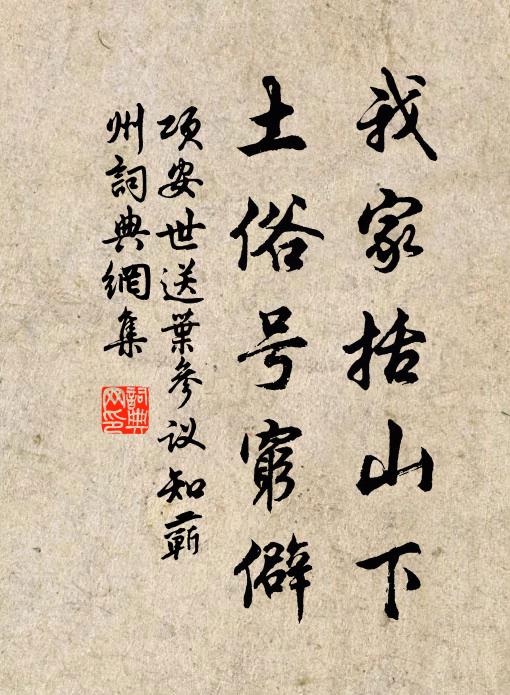 我家括山下
土俗号窮僻
项安世送葉參议知蘄
州詞典網集
詞典
网印